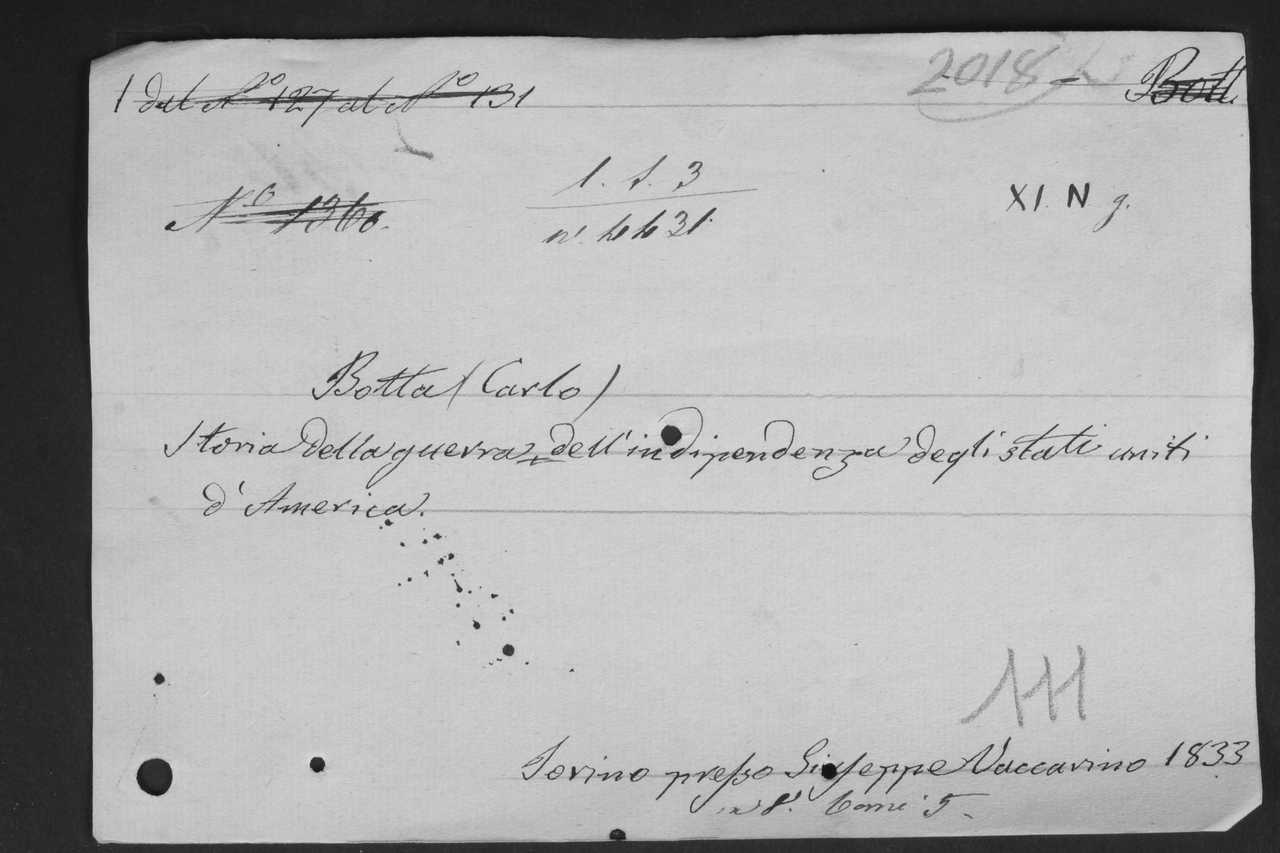 1 dal No 127 al No 131
2018 - Bott
1. S. 3
XI. N g.
No 1360.
n. 4431.
Botta (Carlo)
Storia della guerra dell'indipendenza degli stati uniti
d'America.
111
Torino presso Giuseppe Vaccarino 1833
in 8°. Tomi 5.